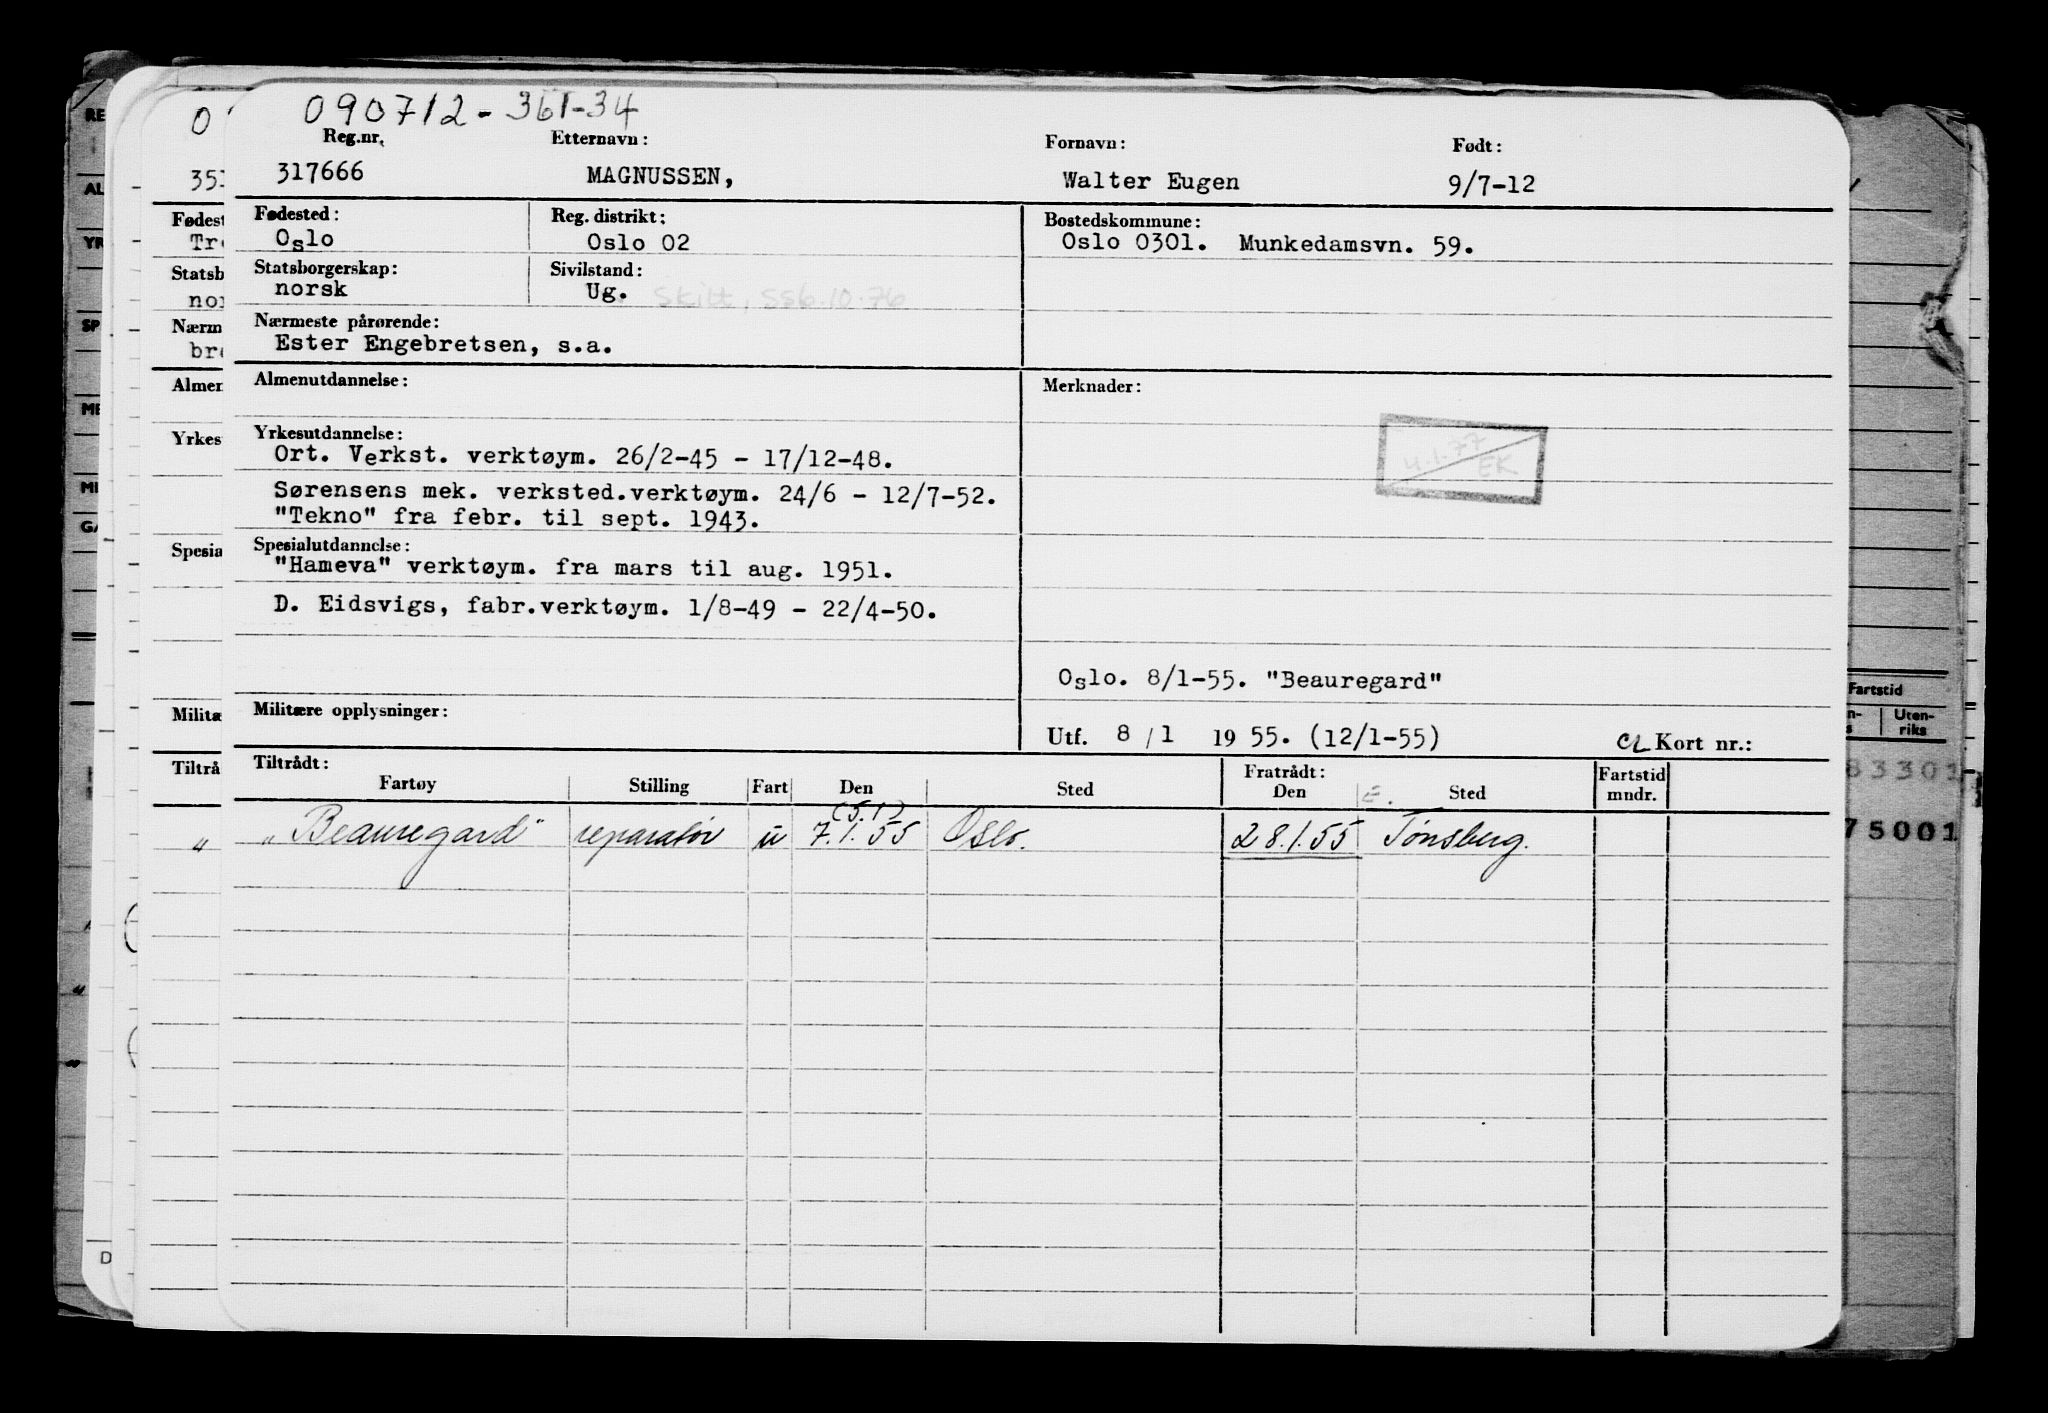 090712-361-34
Reg.nr. Etternavn: Fornavn: Født:
317666 MAGNUSSEN, Walter Eugen 9/7-12
Fødested: Reg. distrikt: Bostedskommune:
Oslo Oslo 02 Oslo 0301. Munkedamsvn. 59.
Statsborgerskap: Sivilstand:
norsk Ug. Skilt, SS6.10.76
Nærmeste pårørende:
Ester Engebretsen, s.a.
Almenutdannelse: Merknader:
Yrkesutdannelse:
Ort. Verkst. verktøym. 26/2-45 - 17/12-48.
4.1.77
EK
Sørensens mek. verksted.verktøym. 24/6 - 12/7-52.
"Tekno" fra febr. til sept. 1943.
Spesialutdannelse:
"Hameva" verktøym. fra mars til aug. 1951.
D. Eidsvigs, fabr.verktøym. 1/8-49 - 22/4-50.
Oslo. 8/1-55. "Beauregard"
Militære opplysninger:
Utf. 8/1 1955. (12/1-55) Kort nr.:
Tiltrådt: Fratrådt:
Fartøy Stilling Fart Den Sted Den Sted Fartstid mndr.
(5.1)
"Beauregard" reparatør u 7.1.55 Oslo. 28.1.55 Tønsberg.
353
Fødest
Tr
Statsb
no
Nærm
br
Almen
Yrkes
Spesia
Militæ
Tiltrå
"
RE
AL
YR
SP
ME
MI
GA
D
Fartstid
Uten-
riks
83301
75001